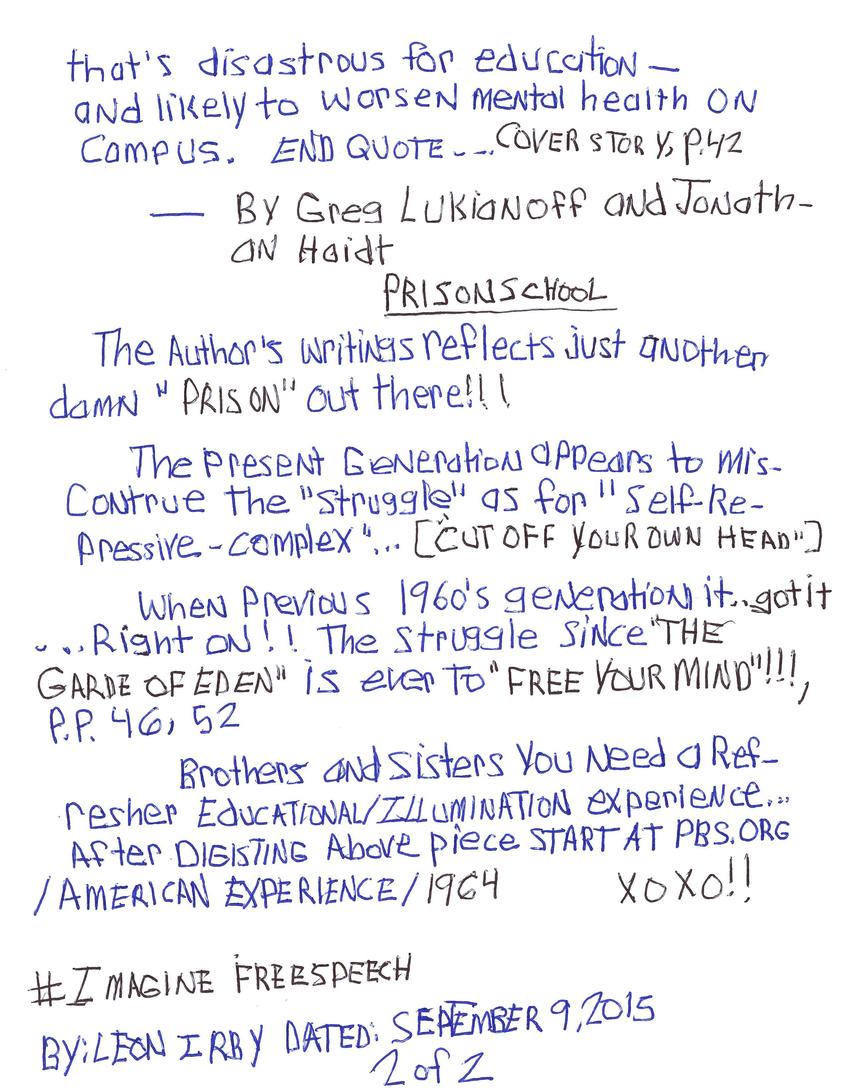 that's disastrous for education —
and likely to worsen mental health on
Campus. END QUOTE - - ... COVER STORY, P.42
— BY Greg Lukianoff and Jonath-
an Haidt
PRISONSCHOOL
The Author's writings reflects just another
damn "PRISON" out there!!!
The Present Generation appears to mis-
Contrue the "struggle" as for "Self-Re-
pressive-complex"... ["CUT OFF YOUR OWN HEAD"]
When Previous 1960's generation it...got it
...Right on!! The struggle since "THE
GARDE OF EDEN" is ever to "FREE YOUR MIND"!!!,
P.P. 46, 52
Brothers and Sisters You Need a Ref-
resher EDUCATIONAL/ILLUMINATION experience...
After DIGISTING Above piece START AT PBS.ORG
/AMERICAN EXPERIENCE/1964 XOXO!!
#IMAGINE FREESPEECH
BY: LEON IRBY DATED: SEPTEMBER 9, 2015
2 of 2